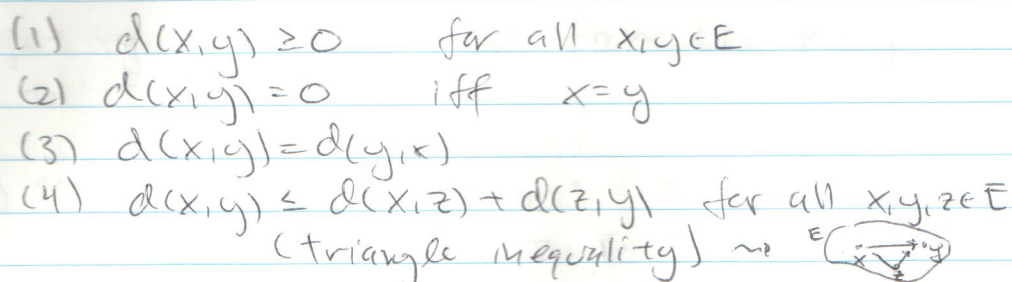 (1) d(x,y) ≥ 0 for all x,y ∈ E
(2) d(x,y) = 0 iff x = y
(3) d(x,y) = d(y,x)
(4) d(x,y) ≤ d(x,z) + d(z,y) for all x,y,z ∈ E
(triangle inequality) ⇝ E x y z